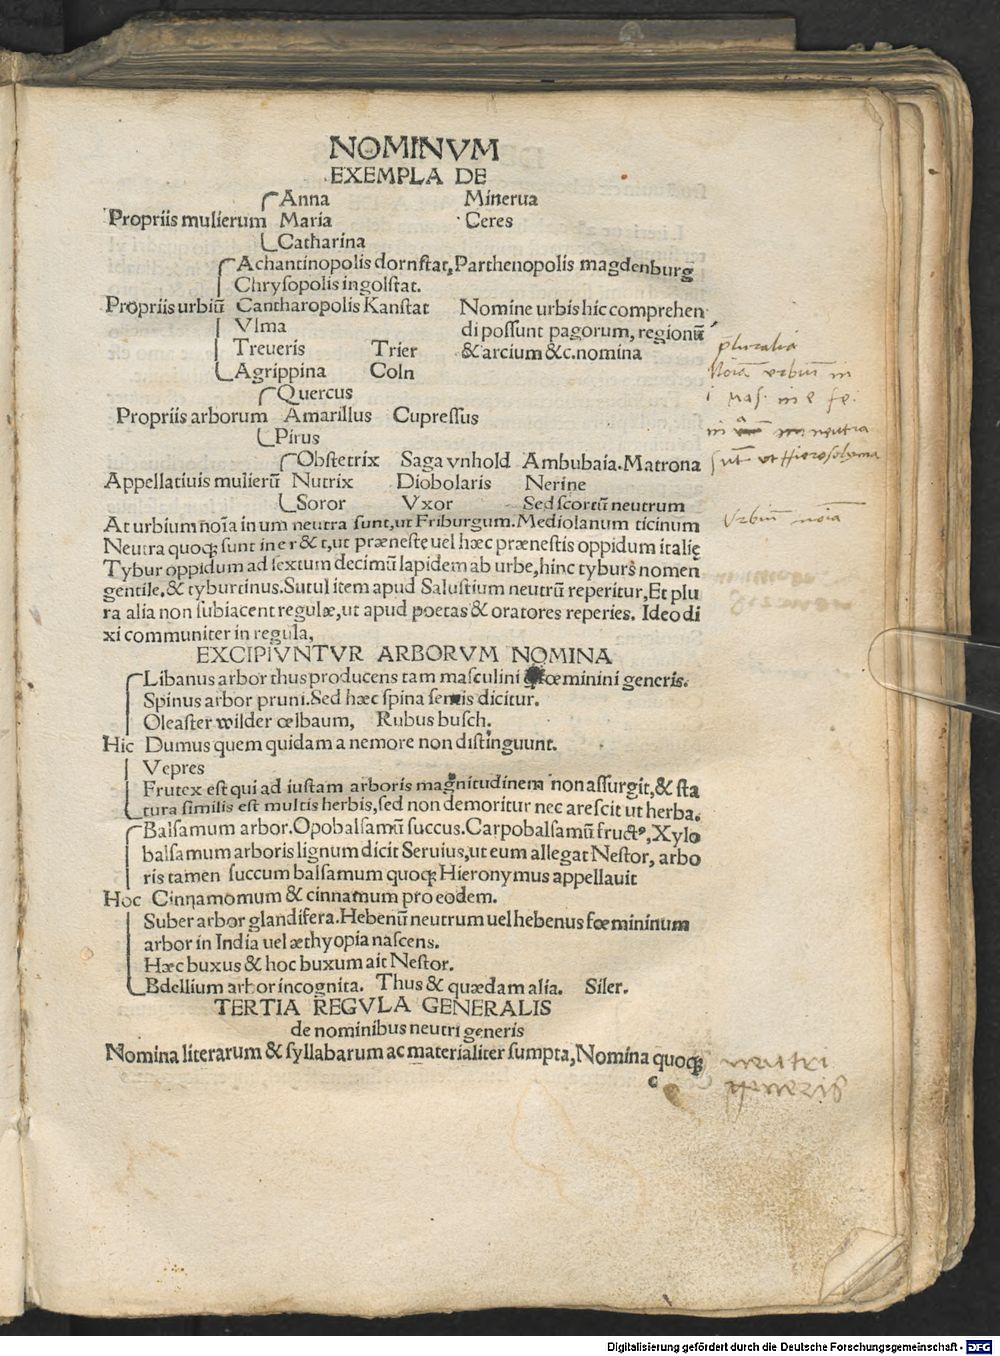 NOMINVM
EXEMPLA DE
Anna Minerua
Propriis mulierum Maria Ceres
Catharina
Achantinopolis dornſtat, Parthenopolis magdenburg
Chryſopolis ingolſtat.
Propriis urbiū Cantharopolis Kanſtat Nomine urbis hic comprehen
Vlma di poſſunt pagorum, regionū
Treueris Trier & arcium &c. nomina
Agrippina Coln
Quercus
Propriis arborum Amarillus Cupreſſus
Pirus
Obſtetrix Saga vnhold Ambubaia. Matrona
Appellatiuis mulierū Nutrix Diobolaris Nerine
Soror Vxor Sed ſcortū neutrum
At urbium noīa in um neutra ſunt, ut Friburgum. Mediolanum ticinum
Neutra quoqꝫ ſunt in e r & t, ut præneſte uel hæc præneſtis oppidum italię
Tybur oppidum ad ſextum decimū lapidem ab urbe, hinc tyburs nomen
gentile, & tyburtinus. Sutul item apud Saluſtium neutrū reperitur, Et plu
ra alia non ſubiacent regulæ, ut apud poetas & oratores reperies. Ideo di
xi communiter in regula,
EXCIPIVNTVR ARBORVM NOMINA
Libanus arbor thus producens tam maſculini fœminini generis.
Spinus arbor pruni. Sed hæc ſpina ſentis dicitur.
Oleaſter wilder œlbaum, Rubus buſch.
Hic Dumus quem quidam a nemore non diſtinguunt.
Vepres
Frutex eſt qui ad iuſtam arboris magnitudinem non aſſurgit, & ſta
tura ſimilis eſt multis herbis, ſed non demoritur nec areſcit ut herba.
Balſamum arbor. Opobalſamū ſuccus. Carpobalſamū fructꝰ, Xylo
balſamum arboris lignum dicit Seruius, ut eum allegat Neſtor, arbo
ris tamen ſuccum balſamum quoqꝫ Hieronymus appellauit
Hoc Cinnamomum & cinnamum pro eodem.
Suber arbor glandifera. Hebenū neutrum uel hebenus fœmininum
arbor in India uel æthyopia naſcens.
Hæc buxus & hoc buxum ait Neſtor.
Bdellium arbor incognita. Thus & quædam alia. Siler.
TERTIA REGVLA GENERALIS
de nominibus neutri generis
Nomina literarum & ſyllabarum ac materialiter ſumpta, Nomina quoqꝫ
c
pluralia
Noīa urbiū in
i mas. in e fe.
in a neutra
ſūt ut Hieroſolyma
Urbiū noīa
neutri
generis
Digitalisierung gefördert durch die Deutsche Forschungsgemeinschaft - DFG